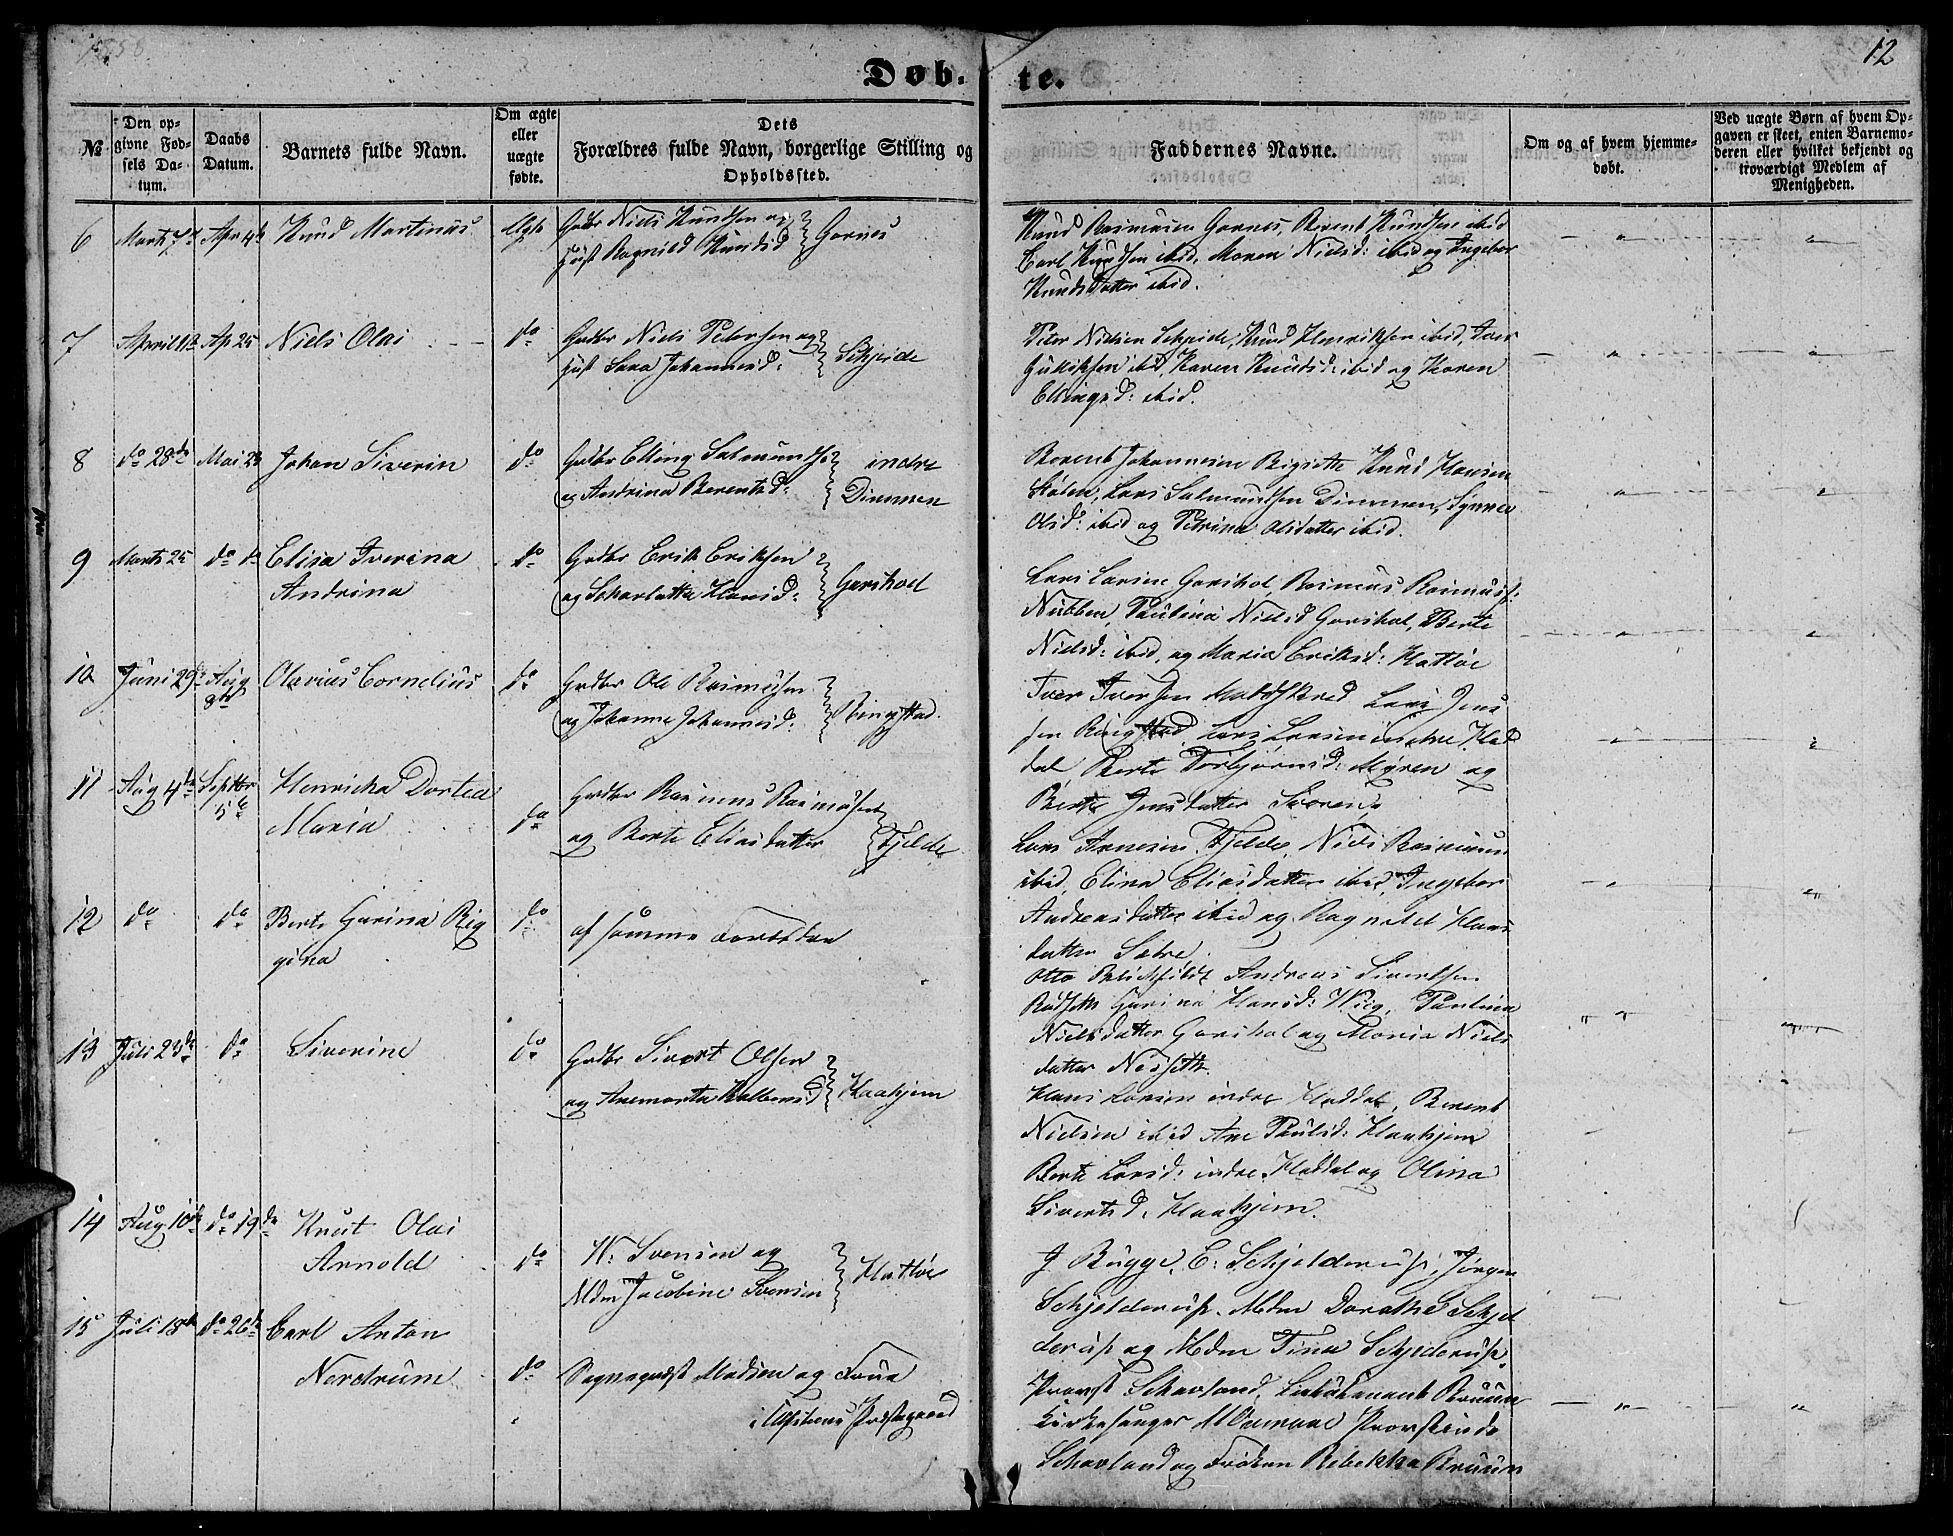 1858
12
Døb-
te.
№
Den op-
givne Fød-
sels Da-
tum.
Daabs
Datum.
Barnets fulde Navn.
Om ægte
eller
uægte
fødte.
Dets
Forældres fulde Navn, borgerlige Stilling og
Opholdssted.
Faddernes Navne.
Om og af hvem hjemme-
døbt.
Ved uægte Børn af hvem Op-
gaven er skeet, enten Barnemo-
deren eller hvilket bekjendt og
troværdigt Medlem af
Menigheden.
6 Marts 7d Apr 4d Knud Martinus Ægte
Gdbr Niels Knudsen og
Hust Ragnild Knudsd Garnes
Knud Rasmusen Garnes, Berent Knudsen ibid
Carl Knudsen ibid, Maren Nielsd: ibid og Ingebor
Knudsdatter ibid.
7 April Ap 25 Niels Olai do
Gdbr Niels Pedersen og
Hust Sara Johannesd: Schjeide
Peter Nielsen Schjeide, Knud Henriksen ibid, Iver
Gulliksen ibd, Karen Knudsd: ibid og Karen
Ellingsd: ibid.
8 do 28de Mai 23 Johan Siverin do
Gdbr Elling Salmundss
og Andrina Berentsd: indre
Dimmen
Berent Johannesen Knud Hansen
Lars Salmundsen Dimmen, Synnev
Olsd: ibid og Petrina Olsdatter ibid.
9 Marts 25 do do Elisa Iverina
Andrina
do
Gdbr Erik Eriksen
og Scharlotta Hansd: Garshol
Lars Larsen Garshol, Rasmus Rasmuss:
Nubben, Paulina Nielsd Garshol, Berte
Nielsd: ibid, og Maria Eriksd: Hatløe
10 Juni 29d Aug
8de
Olavius Cornelius do
Gdbr Ole Rasmussen
og Johanne Johannesd: Ringstad.
Iver Iversen Lars Jens
sen Ringstad Lars Larsen indre Had
dal, Berte Torbjørnsd: Myren og
Berte Jensdatter
11 Aug 4de Septbr
5te
Henricka Dortea
Maria
do
Gdbr Rasmus Rasmusen
og Berte Eliasdatter Fjelde
Lars Arnesen Fjelde, Niels Rasmusen
ibid, Elina Eliasdatter ibid, Ingebor
Andreasdatter ibid og Ragnild Hans
datter Sætre
12 do do Berte Garina Reg
gina
do
af samme Forældre
Otto Andreas Sivertsen
Garina Hansd: Wiig, Paulina
Nielsdatter Garshol og Maria Niels
datter
13 Juli 23de do Siverine do
Gdbr Sivert Olsen
og Anemarta Haakjem
Hans Larsen indre Haddal, Berent
Nielsen ibid Ane Paulsd: Haakjem
Berte Larsd: indre Haddal og Olina
Sivertsd. Haakjem.
14 Aug 10de do 19de Knut Olai
Arnold
do
W: Svensen og
Mdm Jacobine Svensen Hatløe
J Bugge, C: Schjelderup, Jørgen
Schjelderup, Mdm Dorothe Schjel
derup og Mdm Tina Schjelderup
15 Juli 18de do 26de Carl Anton
Nordrum
do
Sognepræst Madsen og Frue
i Ulfsteens Præstegaard
Provst Schavland, Bruun
Kirkesanger Provstinde
Schavland og Frøken Rebekka Bruun